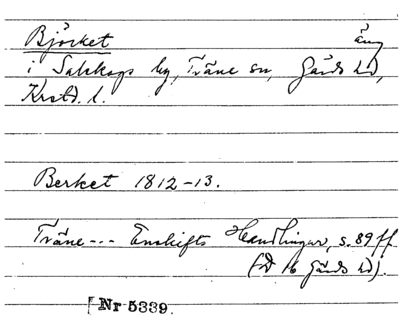 Björket äng
i Salskogs by, Träne sn, Gärds hd,
Krstd. l.
Berket 1812-13.
Träne --- Enskifts Handlingar, s. 89 ff
16 Gärds hd).
[Nr 5339.